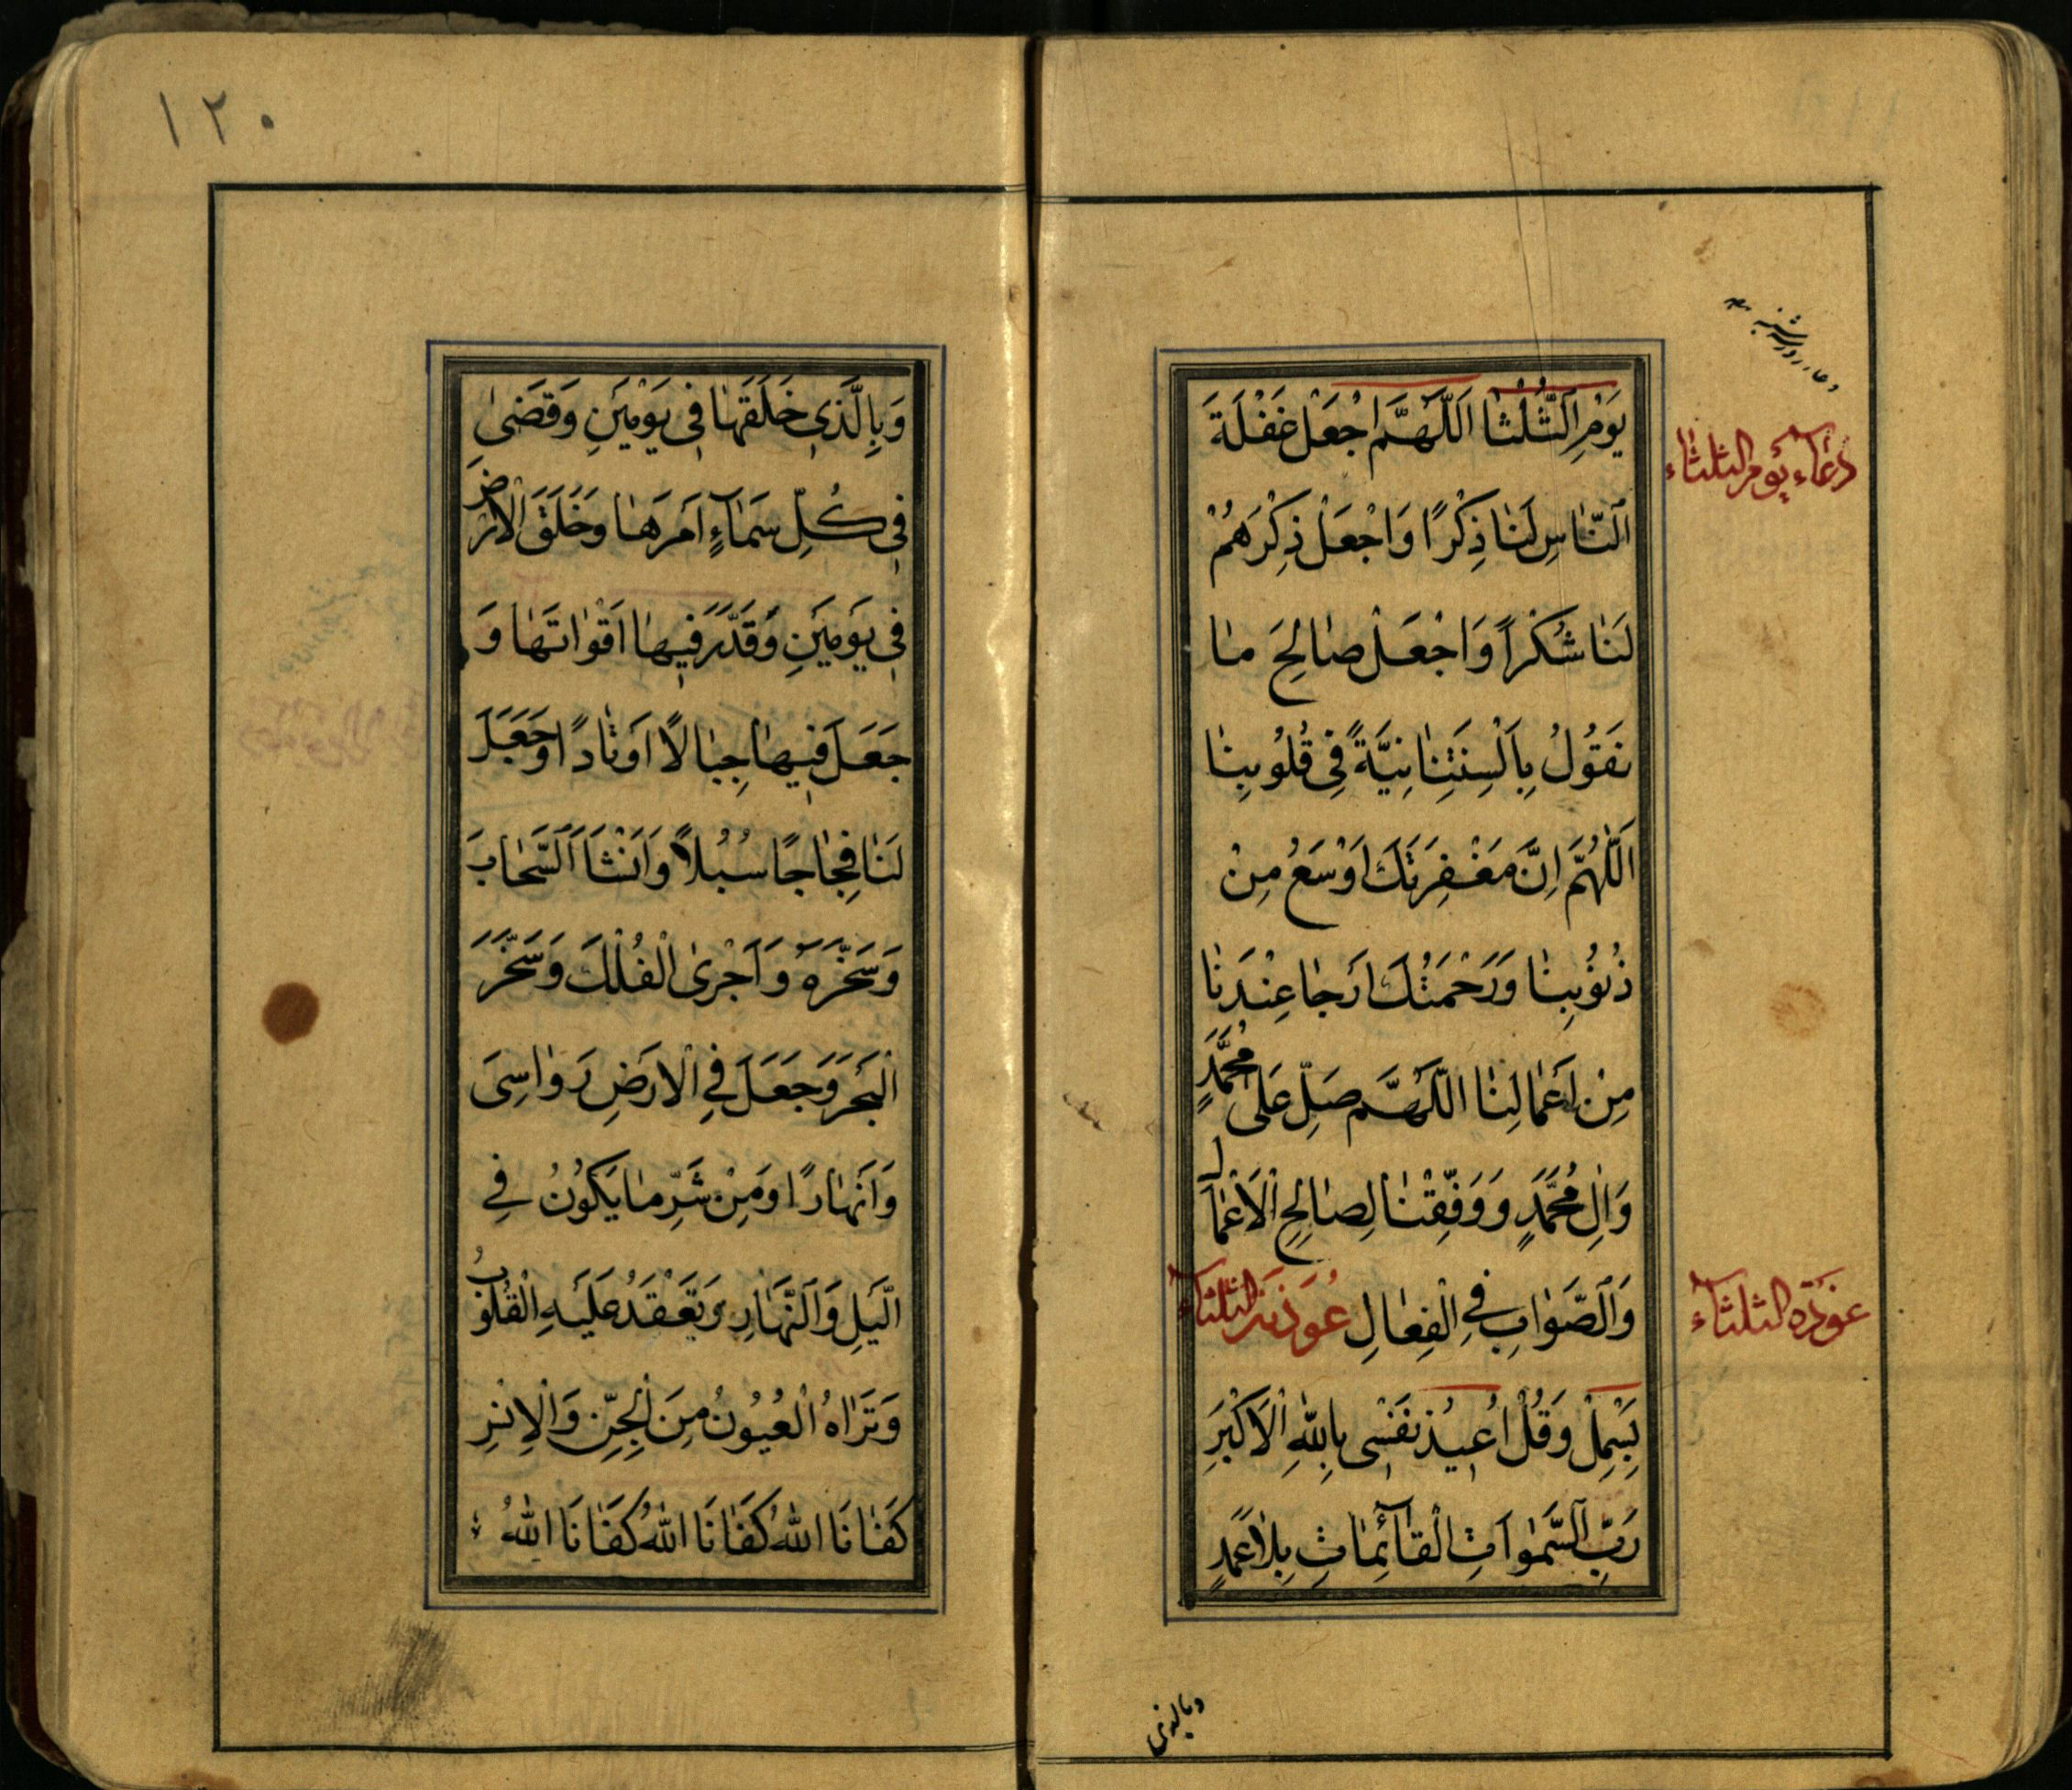 دعاء روز سه شنبه
دعاء يوم الثلثاء
يَوْمِ الثُّلْثَا اَللّٰهُمَّ اجْعَلْ غَفْلَةَ
اَلنّٰاسِ لَنٰا ذِكْرًا وَاجْعَلْ ذِكْرَهُمْ
لَنٰا شُكْرًا وَاجْعَلْ صٰالِحَ مٰا
نَقُولُ بِاَلْسِنَتِنٰا نِيَّةً فِي قُلُوبِنٰا
اَللّٰهُمَّ اِنَّ مَغْفِرَتَكَ اَوْسَعُ مِنْ
ذُنُوبِنٰا وَرَحْمَتُكَ اَرْجٰا عِنْدَنٰا
مِنْ اَعْمٰالِنٰا اَللّٰهُمَّ صَلِّ عَلٰى مُحَمَّدٍ
وَاٰلِ مُحَمَّدٍ وَوَفِّقْنٰا لِصٰالِحِ الْاَعْمٰالِ
وَالصَّوٰابِ فِي الْفِعٰالِ عُوذَة الثلثاء
عوذة الثلثاء
بَسْمِلْ وَقُلْ اُعِيذُ نَفْسِي بِاللّٰهِ الْاَكْبَرِ
رَبِّ السَّمٰوٰاتِ الْقٰآئِمٰاتِ بِلاٰ عَمَدٍ
وبالذي
١٢٠
وَبِالَّذِي خَلَقَهٰا فِي يَوْمَيْنِ وَقَضٰى
فِي كُلِّ سَمٰآءٍ اَمْرَهٰا وَخَلَقَ الْاَرْضَ
فِي يَوْمَيْنِ وَقَدَّرَ فِيهٰا اَقْوٰاتَهٰا وَ
جَعَلَ فِيهٰا جِبٰالًا اَوْتٰادًا وَجَعَلَ
لَنٰا فِجٰاجًا سُبُلاً وَاَنْشَاَ السَّحٰابَ
وَسَخَّرَهُ وَاَجْرَى الْفُلْكَ وَسَخَّرَ
الْبَحْرَ وَجَعَلَ فِي الْاَرْضِ رَوٰاسِيَ
وَاَنْهٰارًا وَمِنْ شَرِّ مٰا يَكُونُ فِي
الَّيْلِ وَالنَّهٰارِ وَتَعْقِدُ عَلَيْهِ الْقُلُوبُ
وَتَرٰاهُ الْعُيُونُ مِنَ الْجِنِّ وَالْاِنْسِ
كَفٰانَا اللّٰهُ كَفٰانَا اللّٰهُ كَفٰانَا اللّٰهُ